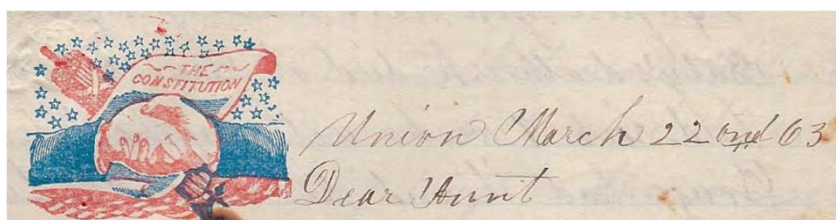 THE
CONSTITUTION
Union March 22ond 63
Dear Aunt